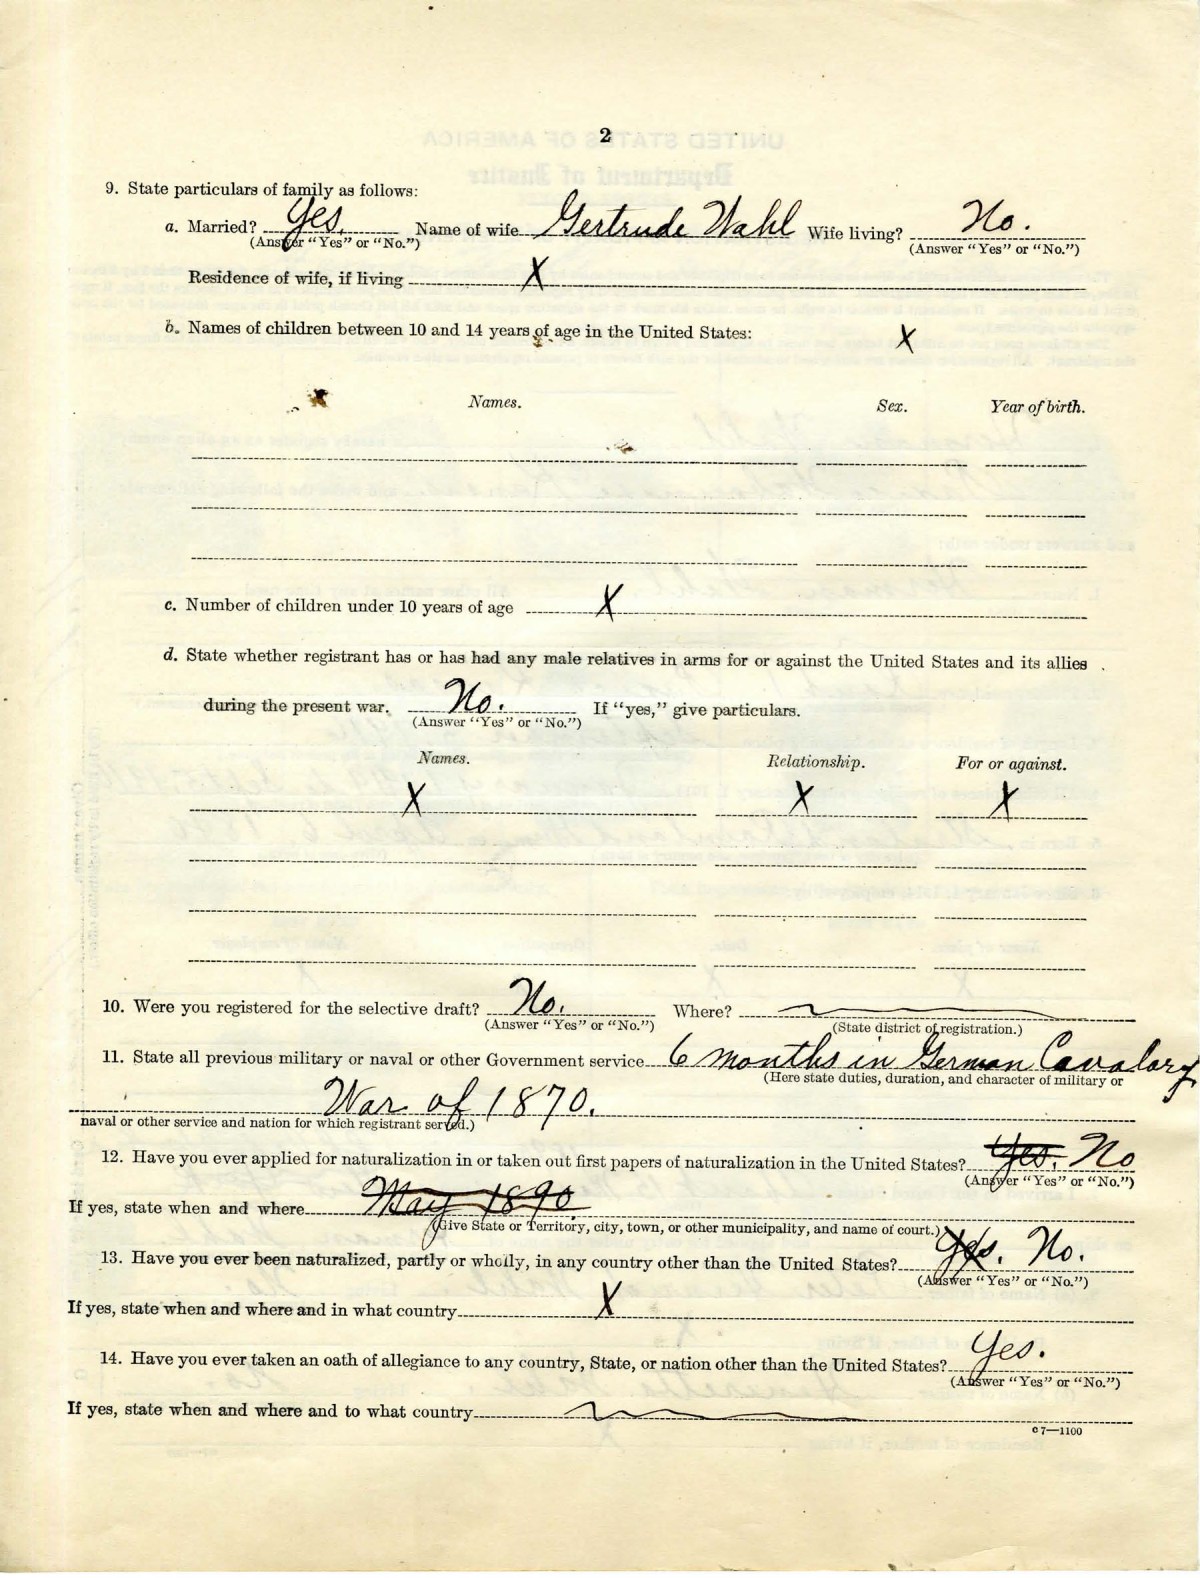 2
9. State particulars of family as follows:
a. Married? Yes. Name of wife Gertrude Wahl Wife living? No.
(Answer "Yes" or "No.") (Answer "Yes" or "No.")
Residence of wife, if living X
b. Names of children between 10 and 14 years of age in the United States: X
Names. Sex. Year of birth.
c. Number of children under 10 years of age X
d. State whether registrant has or has had any male relatives in arms for or against the United States and its allies
during the present war. No. If "yes," give particulars.
(Answer "Yes" or "No.")
Names. Relationship. For or against.
X X X
10. Were you registered for the selective draft? No. Where?
(Answer "Yes" or "No.") (State district of registration.)
11. State all previous military or naval or other Government service 6 months in German Cavalary
(Here state duties, duration, and character of military or
War of 1870.
naval or other service and nation for which registrant served.)
12. Have you ever applied for naturalization in or taken out first papers of naturalization in the United States? Yes. No
(Answer "Yes" or "No.")
If yes, state when and where May 1890
(Give State or Territory, city, town, or other municipality, and name of court.)
13. Have you ever been naturalized, partly or wholly, in any country other than the United States? Yes. No.
(Answer "Yes" or "No.")
If yes, state when and where and in what country X
14. Have you ever taken an oath of allegiance to any country, State, or nation other than the United States? Yes.
(Answer "Yes" or "No.")
If yes, state when and where and to what country
c7—1100